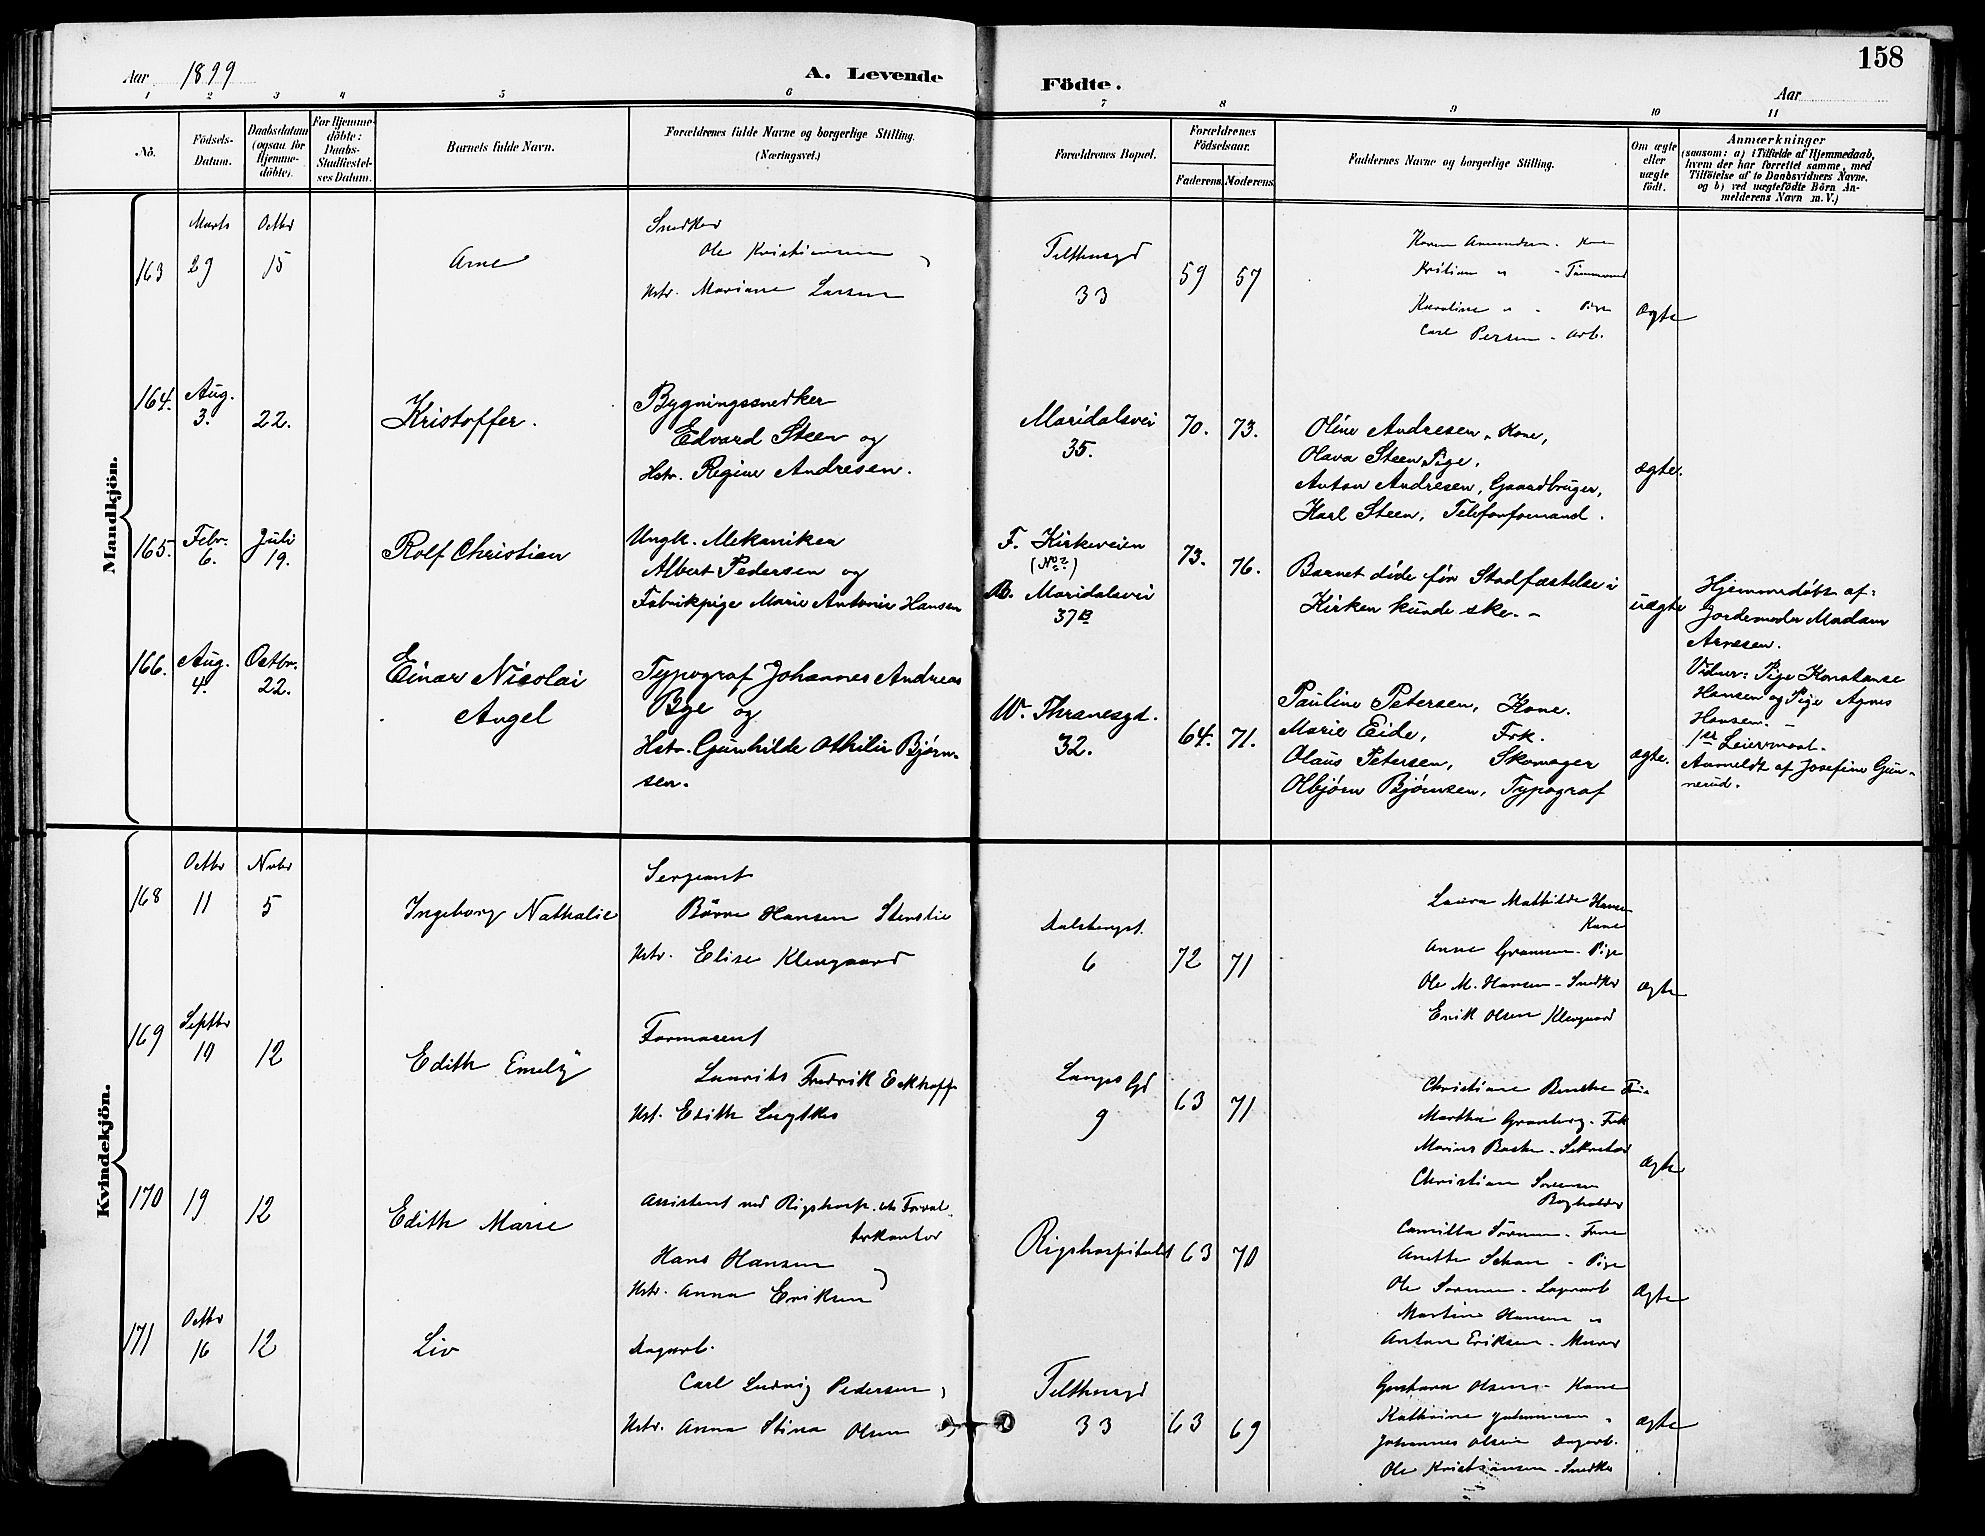 Aar 1899
A. Levende
Födte.
158
Aar
1 2 3 4 5 6 7 8 9 10 11
No.
Födsels-
Datum.
Daabsdatum
(ogsaa for
Hjemme-
döbte).
For Hjemme-
döbte:
Daabs-
Stadfæstel-
ses Datum.
Barnets fulde Navn.
Forældrenes fulde Navne og borgerlige Stilling.
(Næringsvei.)
Forældrenes Bopæl.
Forældrenes
Födselsaar.
Faderens. Moderens.
Faddernes Navne og borgerlige Stilling.
Om ægte
eller
uægte
födt.
Anmærkninger
(saasom: a) i Tilfælde af Hjemmedaab,
hvem der har forrettet samme, med
Tilföielse af to Daabsvidners Navne,
og b) ved uægtefödte Börn An-
melderens Navn m. V.)
Mandkjön.
163
Marts
29
Octbr
15
Arne
Snedker
Ole Kristiansen
Hstr. Mariane Larsen
Telthusgd
33
59 57
Karen Amundsen - Kone
Kristian " - Tømmermd
Karoline " " Pige
Carl Persen - Arb.
ægte
164.
Aug.
3.
22.
Kristoffer.
Bygningssnedker
Edvard Steen og
Hstr. Regine Andresen.
Maridalsvei
35.
70. 73.
Oline Andresen, Kone,
Olava Steen Pige,
Anton Andresen, Gaardbruger,
Karl Steen, Telefonformand.
ægte.
165.
Febr.
6.
Juli
19.
Rolf Christian
Ungk. Mekaniker
Albert Pedersen og
Fabrikpige Marie Antonie Hansen
F. Kirkeveien
(No 2)
B. Maridalsvei
37B
73. 76.
Barnet døde før Stadfæstelse i
Kirken kunde ske. -
uægte
Hjemmedøbt af:
Jordemoder Madam
Arvesen.
Vidner: Pige Konstanse
Hansen og Pige Agnes
Hansen. -
1ste Leiermaal.
Anmeldt af Josefine Gun-
nerud.
166.
Aug.
4.
Octbr.
22.
Einar Nicolai
Angel
Typograf Johannes Andreas
Bye og
Hstr. Gunhilde Othilie Bjørn-
sen.
W. Thranesgd.
32.
64. 71.
Pauline Petersen, Kone.
Marie Eide, Frk.
Olaus Petersen, Skomager
Olbjørn Bjørnsen, Typograf
ægte.
Kvindekjön.
168
Octbr
11
Nvbr
5
Ingeborg Nathalie
Sergeant
Børre Hansen Stenstie
Hstr. Elise Klevgaard
Dalsbergst.
6
72 71
Laura Mathilde Hansen
Kone
Anne Gransen - Pige
Ole M. Hansen - Snedker
Enik Olsen Klevgaard
ægte
169
Septbr
10
12
Edith Emely
Farmaceut
Laurits Fredrik Eckhoff
Hst. Edith Lugtkes
Langes Gd
9
63 71
Christiane
Martha Granberg - Frk
Marius - Sekretær
Christian Sørensen
Bogholder
ægte
170
19
12
Edith Marie
Assistent ved Rigshosp.
Hans Hansen
Hstr. Anna Eriksen
Rigshospitalet
63 70
Camilla Sørensen - Frue
Anette - Pige
Ole Sørensen - Lagerarb
Martin Hansen "
Anton Eriksen - Murer
ægte
171
Octbr
16
12
Liv
Dagarb.
Carl Ludvig Pedersen
Hstr. Anna Stina Olsen
Telthusgd
33
63 69
Gustava Olsen - Kone
Kathrine Johannesen "
Johannes Olsen Dagarb.
Ole Kristiansen - Snedker
ægte